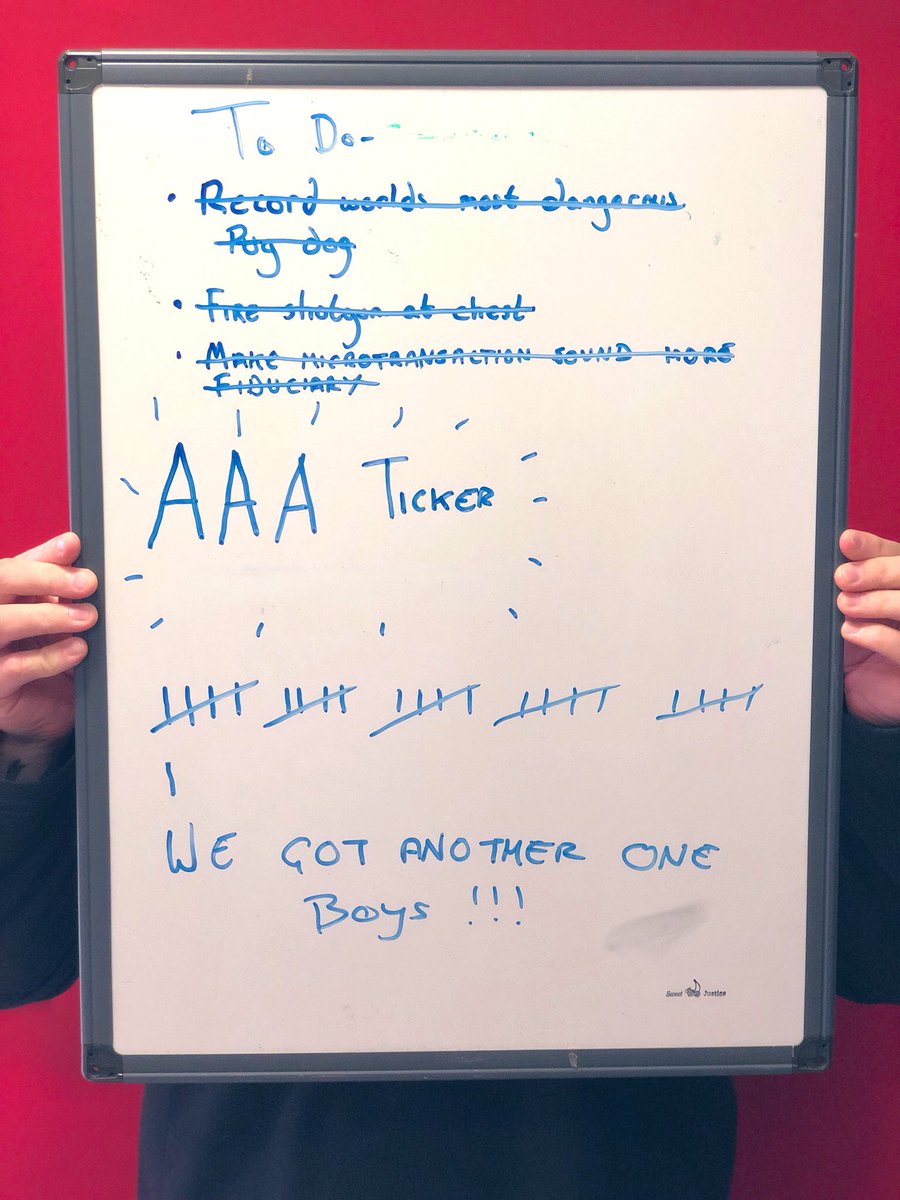 To Do-
• Record worlds most dangerous
Pug dog
• Fire shotgun at chest
• MAKE MICROTRANSACTION SOUND MORE
FIDUCIARY
AAA TICKER
WE GOT ANOTHER ONE
Boys !!!
Sweet Justice